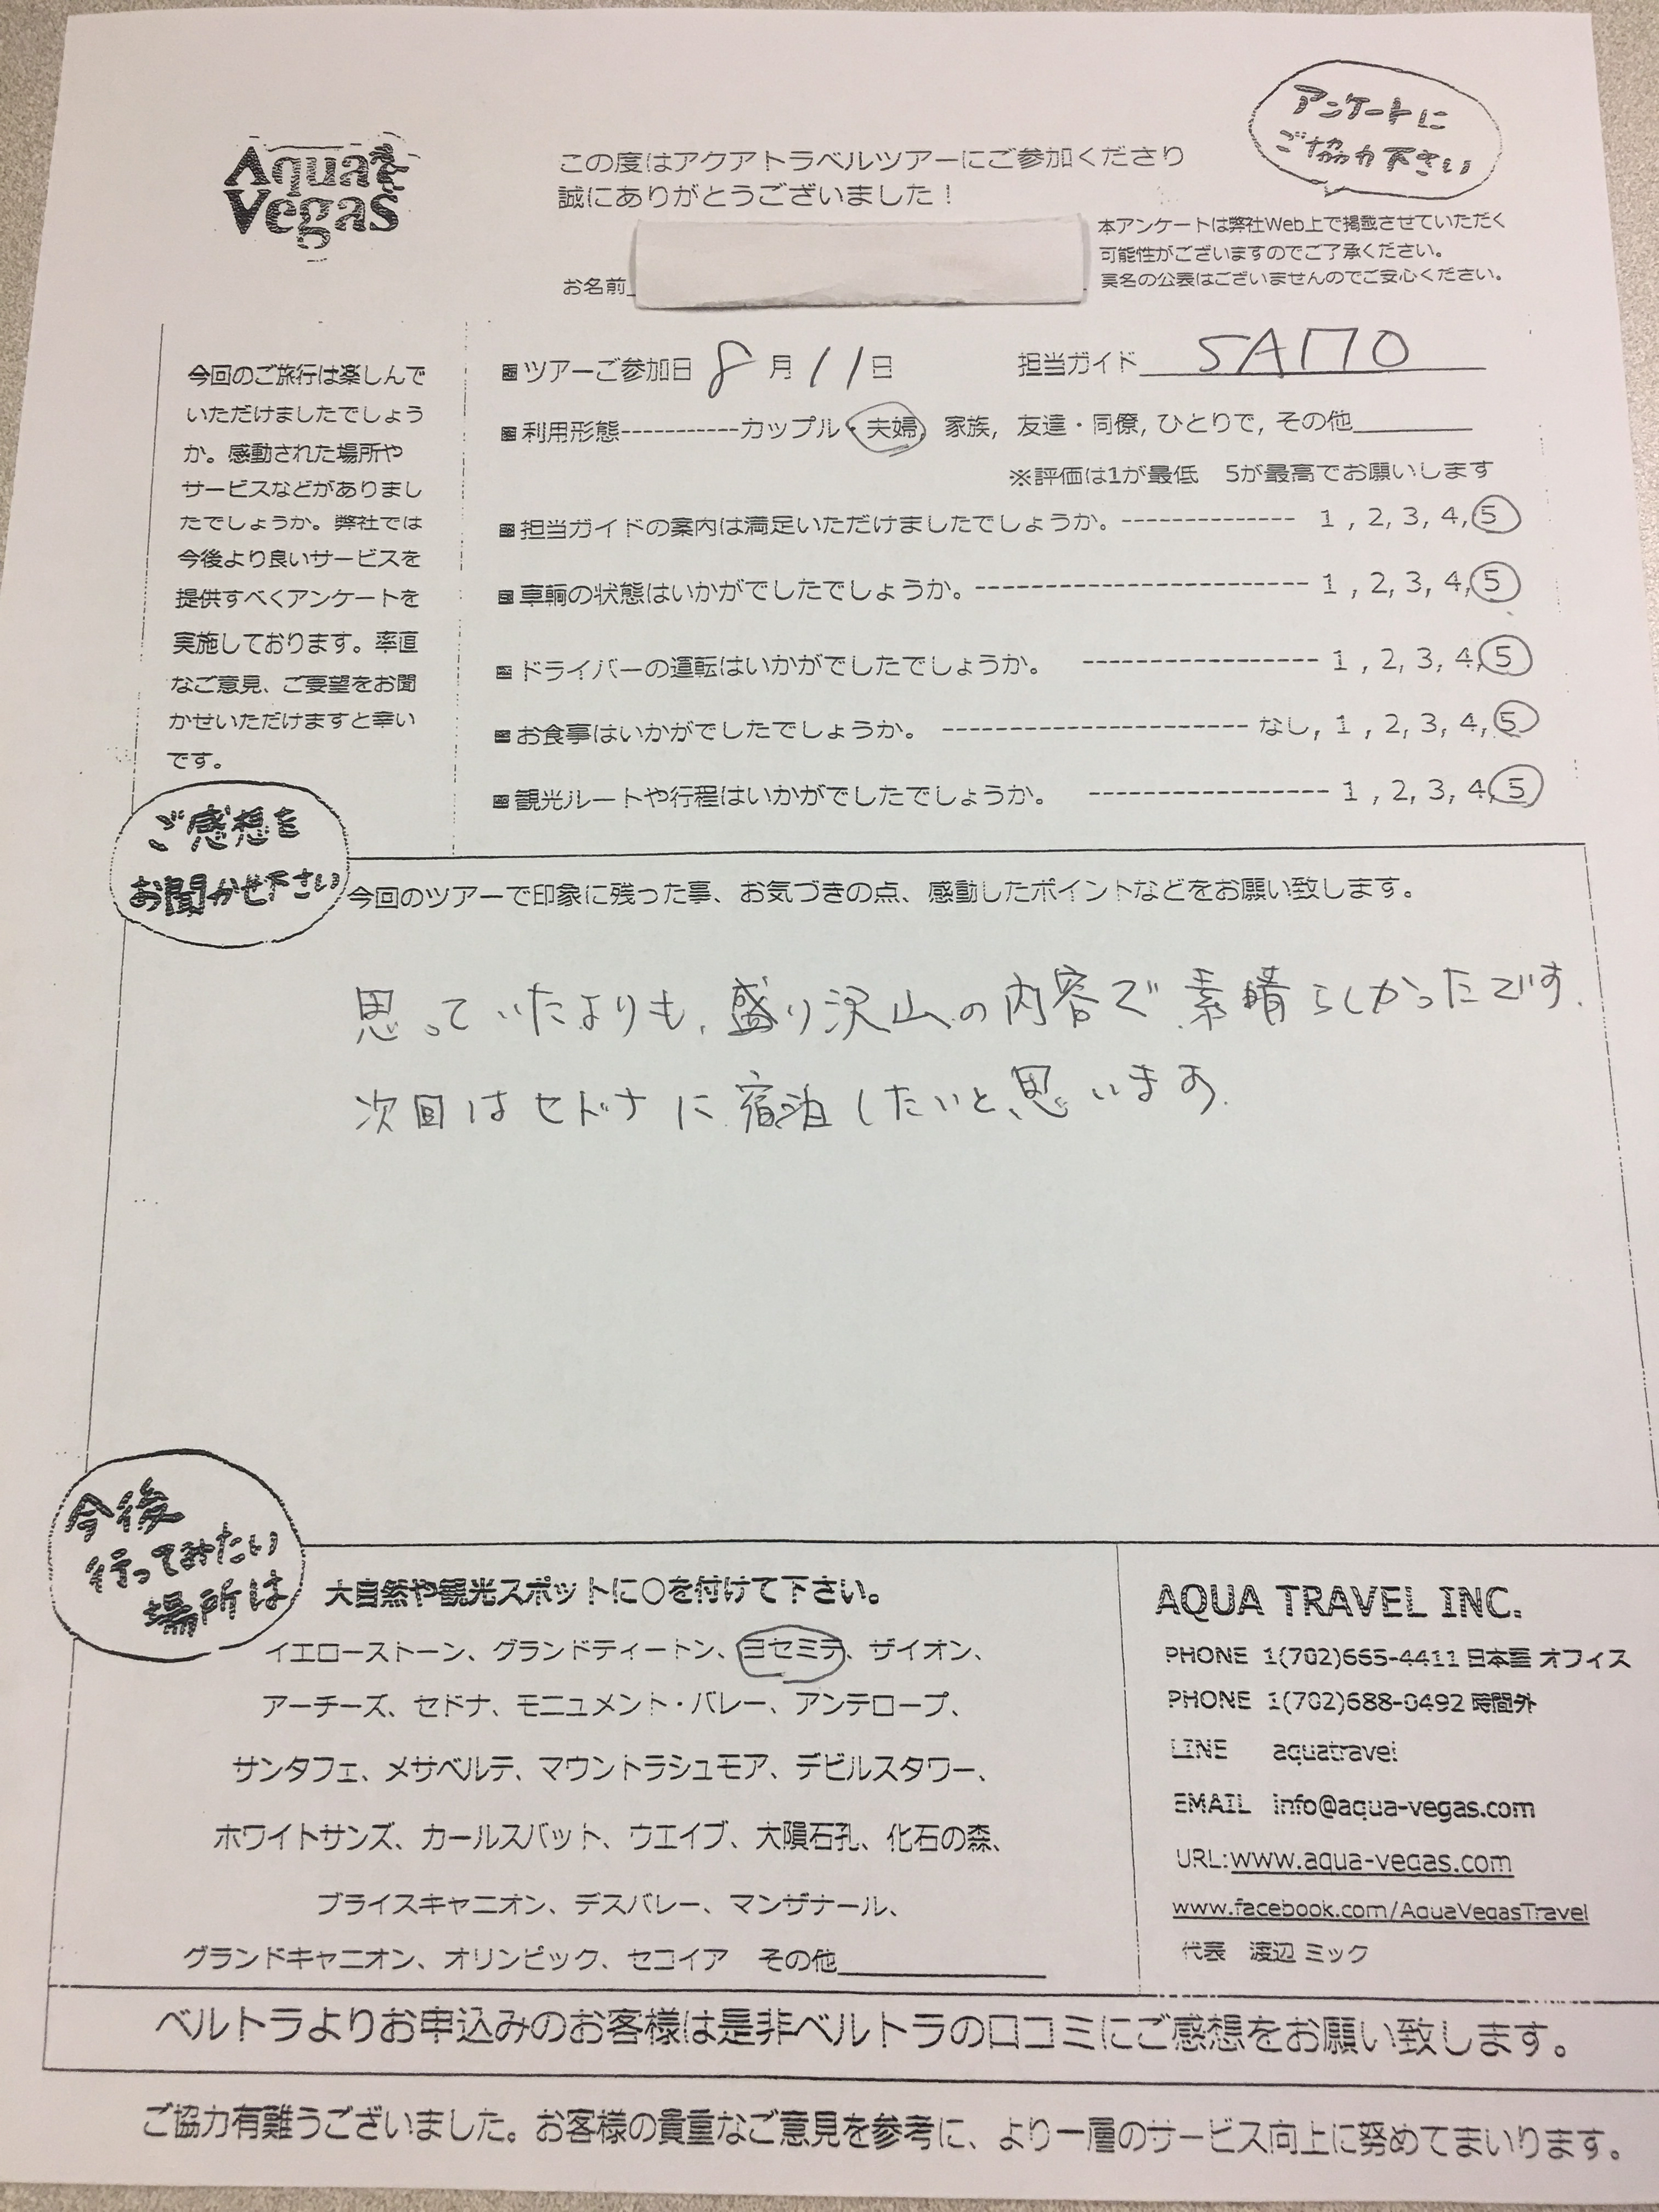 Aqua
Vegas
アンケートに
ご協力下さい
この度はアクアトラベルツアーにご参加くださり
誠にありがとうございました！
本アンケートは弊社Web上で掲載させていただく
可能性がございますのでご了承ください。
実名の公表はございませんのでご安心ください。
お名前
今回のご旅行は楽しんで
いただけましたでしょう
か。感動された場所や
サービスなどがありまし
たでしょうか。弊社では
今後より良いサービスを
提供すべくアンケートを
実施しております。率直
なご意見、ご要望をお聞
かせいただけますと幸い
です。
ツアーご参加日 8月11日 担当ガイド SAITO
利用形態-----------カップル・夫婦, 家族, 友達・同僚, ひとりで, その他
※評価は1が最低 5が最高でお願いします
担当ガイドの案内は満足いただけましたでしょうか。-------------- 1, 2, 3, 4, 5
車輌の状態はいかがでしたでしょうか。----------------------- 1, 2, 3, 4, 5
ドライバーの運転はいかがでしたでしょうか。 ----------------- 1, 2, 3, 4, 5
お食事はいかがでしたでしょうか。 ---------------------- なし, 1, 2, 3, 4, 5
観光ルートや行程はいかがでしたでしょうか。 ----------------- 1, 2, 3, 4, 5
ご感想を
お聞かせ下さい
今回のツアーで印象に残った事、お気づきの点、感動したポイントなどをお願い致します。
思っていたよりも、盛り沢山の内容で素晴らしかったです.
次回はセドナに宿泊したいと思います.
今後
行ってみたい
場所は
大自然や観光スポットに○を付けて下さい。
イエローストーン、グランドティートン、ヨセミテ、ザイオン、
アーチーズ、セドナ、モニュメント・バレー、アンテロープ、
サンタフェ、メサベルテ、マウントラシュモア、デビルスタワー、
ホワイトサンズ、カールスバット、ウエイブ、大隕石孔、化石の森、
ブライスキャニオン、デスバレー、マンザナール、
グランドキャニオン、オリンピック、セコイア その他
AQUA TRAVEL INC.
PHONE 1(702)665-4411 日本語 オフィス
PHONE 1(702)688-0492 時間外
LINE aquatravel
EMAIL info@aqua-vegas.com
URL:www.aqua-vegas.com
www.facebook.com/AquaVegasTravel
代表 渡辺 ミック
ベルトラよりお申込みのお客様は是非ベルトラの口コミにご感想をお願い致します。
ご協力有難うございました。お客様の貴重なご意見を参考に、より一層のサービス向上に努めてまいります。